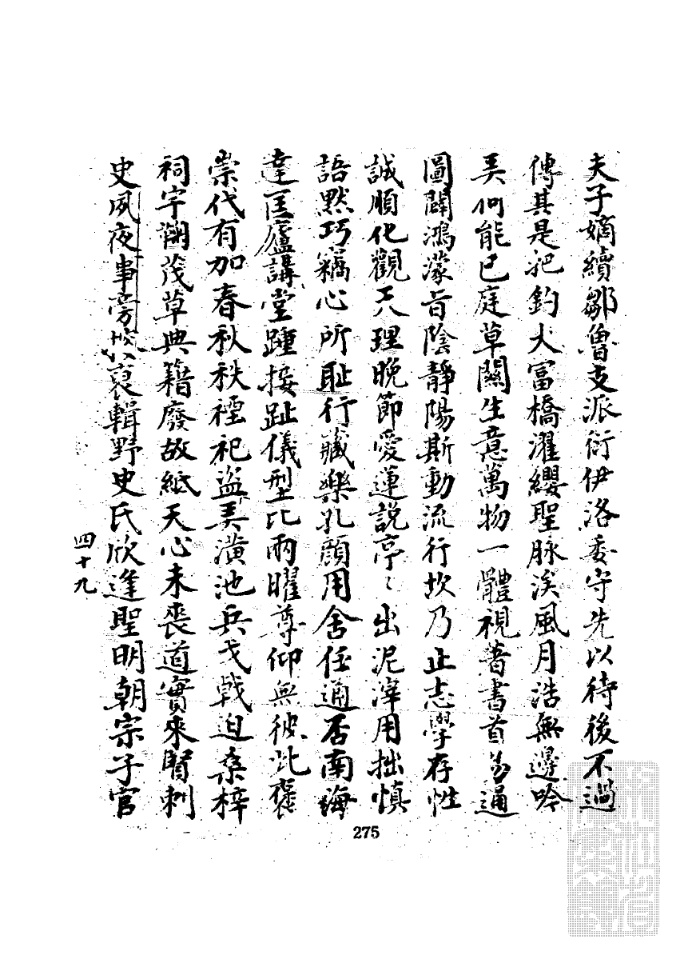 夫子嫡續鄒魯支派衍伊洛委守先以待後不過
傳其是把釣大富橋濯纓聖脉涘風月浩無邊吟
弄何能已庭草關生意萬物一體視著書首易通
圖闢鴻濛旨陰靜陽斯動流行坎乃止志學存性
誠順化觀天理晚節愛蓮説亭〻出泥滓用拙慎
語默巧竊心所恥行藏樂孔顏用舍任通否南海
達匡廬講堂踵接趾儀型比兩曜尊仰無彼此褒
崇代有加春秋秩禋祀盜弄潢池兵戈戟迫桑梓
祠宇鞠茂草典籍廢故紙天心未喪道實來賢刺
史夙夜事旁搜裒輯野史氏欣逢聖明朝宗子官
四十九
275